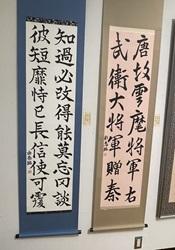 唐故雲麾將軍右
武衛大將軍贈秦
知過必改得能莫忘罔談
彼短靡恃己長信使可覆